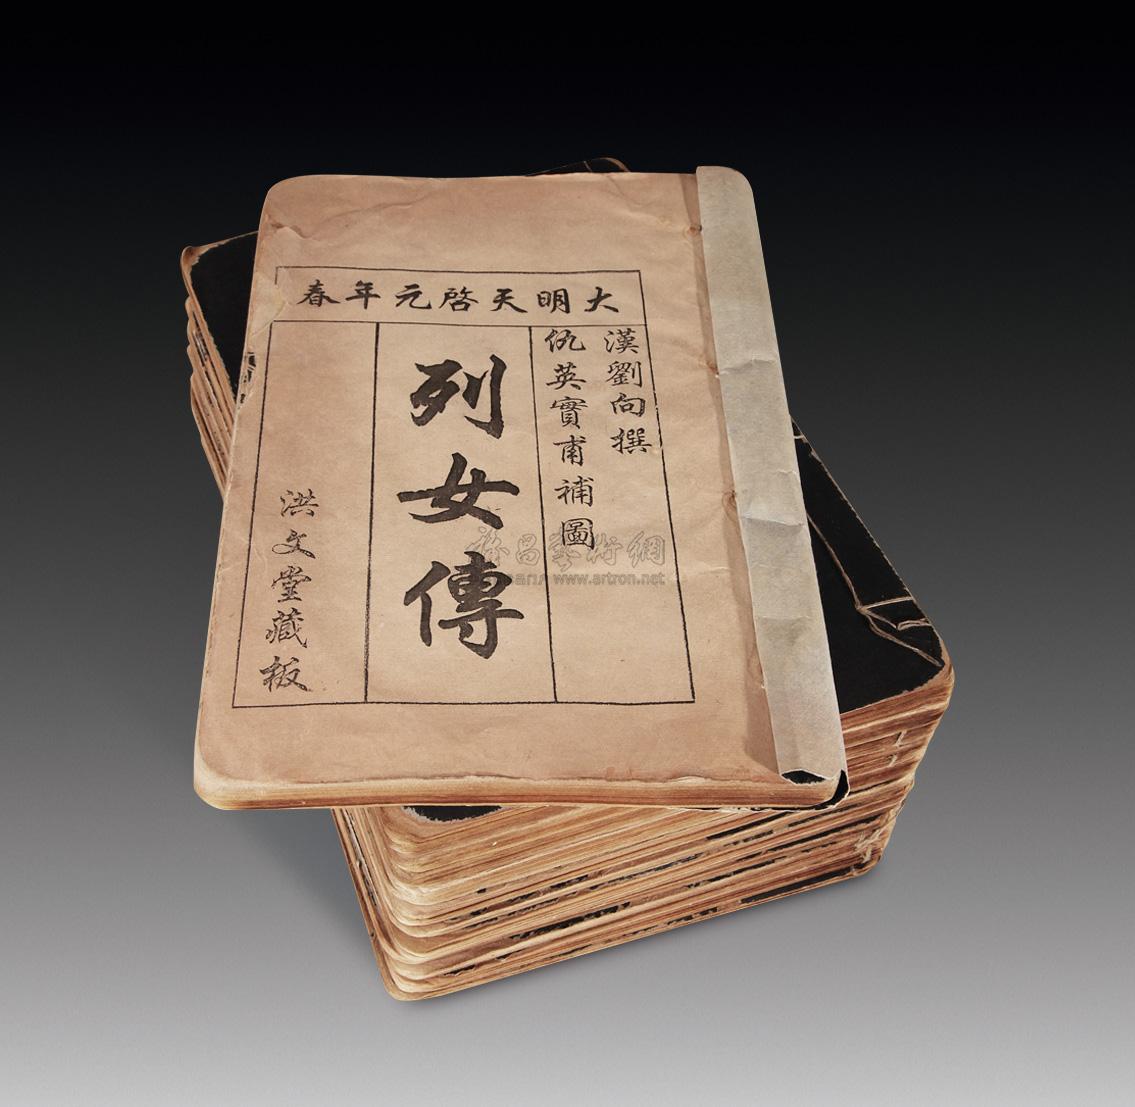 大明天啓元年春
漢劉向撰
仇英實甫補圖
列女傳
洪文堂藏板
雅昌藝術網
www.artron.net